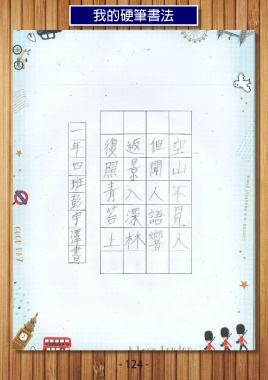 我的硬筆書法
空山不見人
但聞人語響
返景入深林
復照青苔上
一年四班彭宇澤書
- 124 -